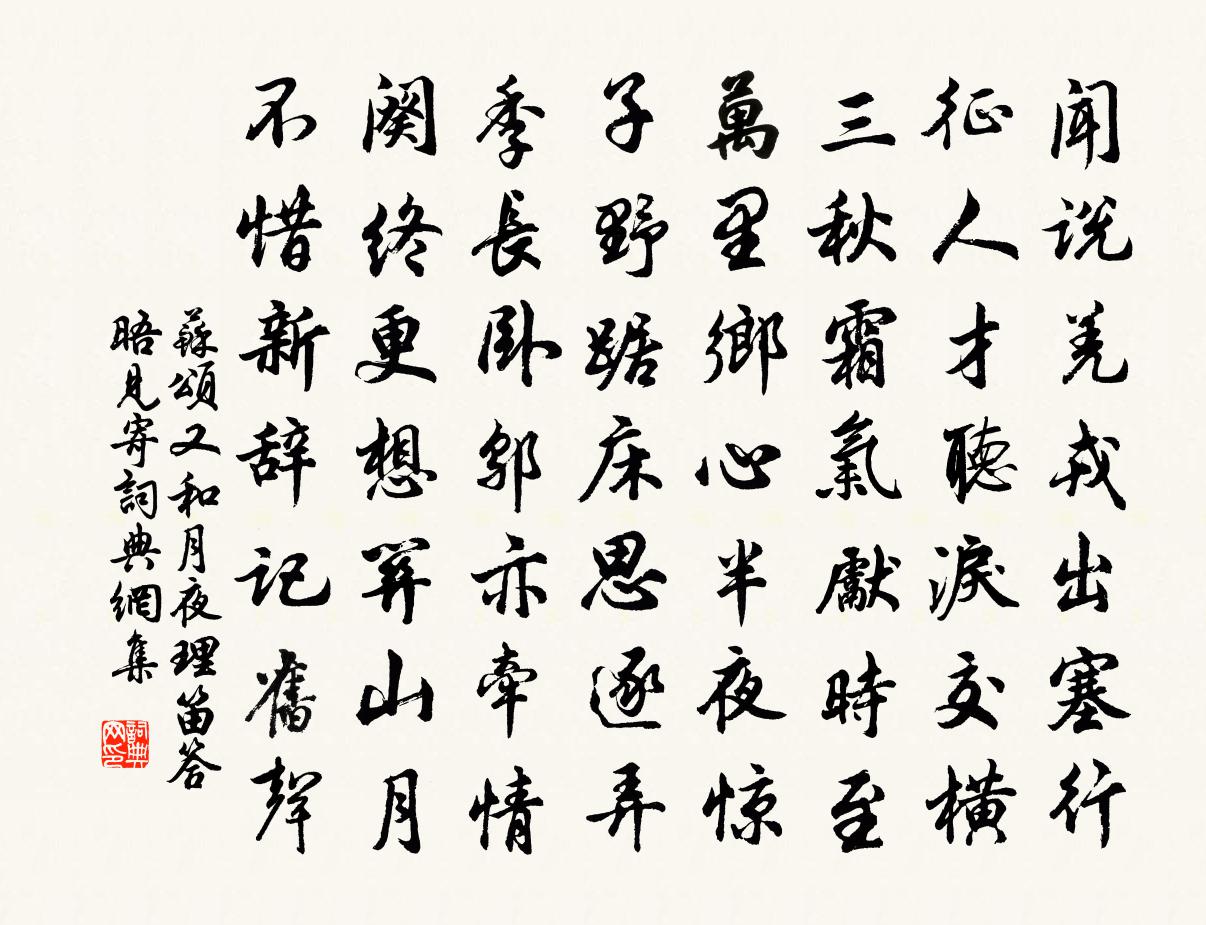 闻说羌戎出塞行
征人才聽淚交橫
三秋霜氣獻時至
萬里鄉心半夜惊
子野踞床思逐弄
季長卧鄔亦牽情
阕终更想關山月
不惜新辞記舊聲
蘇頌又和月夜理笛答
晤見寄詞典網集
詞典网印